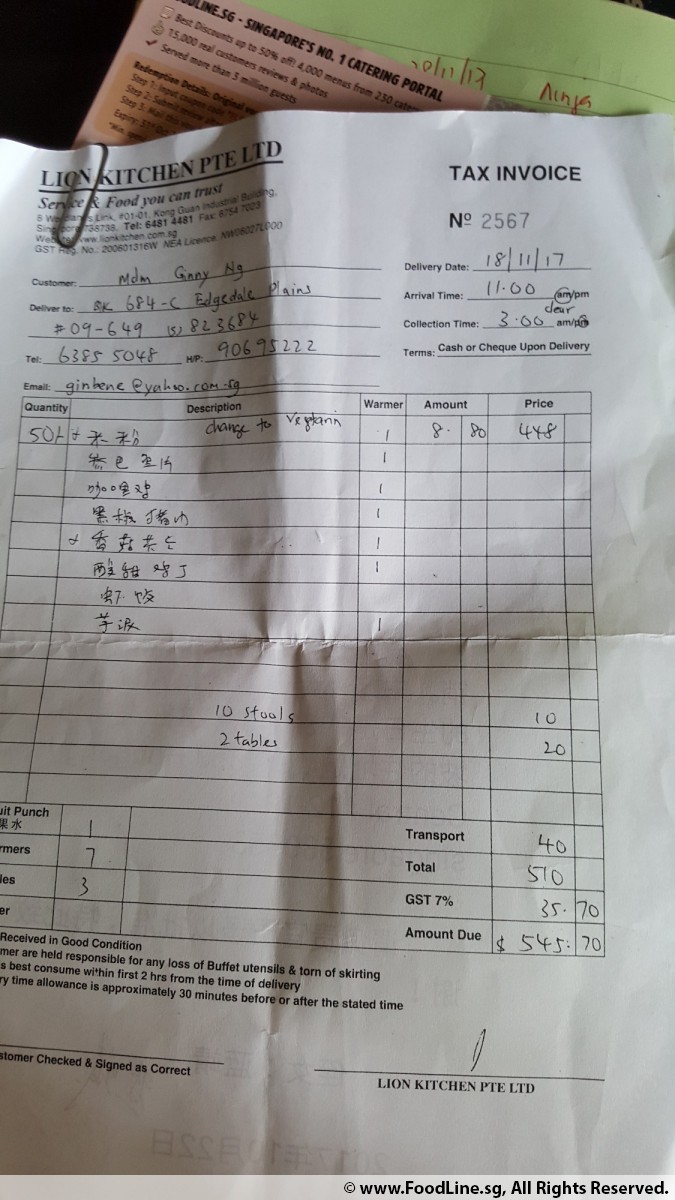 FOODLINE.SG - SINGAPORE'S NO. 1 CATERING PORTAL
Best Discounts up to 50% off! 4,000 menus from 230 cater
15,000 real customers reviews & photos
Served more than 3 million guests
Redemption Details: Original
Step 1: Input coupon code
Step 2: Submit review
Step 3: Mail this
20/11/17
Ninja
LION KITCHEN PTE LTD
Service & Food you can trust
Link, #01-01, Kong Guan Industrial Building,
738738. Tel: 6481 4481 Fax: 6754 7003
www.lionkitchen.com.sg
GST Reg. No.: 200601316W NEA Licence. NW06027L000
TAX INVOICE
Nº 2567
Customer: Mdm Ginny Ng
Deliver to: BLK 684-C Edgedale Plains
#09-649 (S) 823684
Tel: 6385 5048 H/P: 90695222
Email: ginbene@yahoo.com.sg
Delivery Date: 18/11/17
Arrival Time: 11.00 am/pm
clear
Collection Time: 3.00 am/pm
Terms: Cash or Cheque Upon Delivery
Quantity Description Warmer Amount Price
50 米粉 change to 1 8.80 448
1
咖哩鸡 1
黑椒猪肉 1
1
酸甜鸡丁 1
虾饺
1
10 stools 10
2 tables 20
uit Punch
果水 1
rmers 7
les 3
er
Transport 40
Total 510
GST 7% 35.70
Amount Due $ 545.70
Received in Good Condition
mer are held responsible for any loss of Buffet utensils & torn of skirting
s best consume within first 2 hrs from the time of delivery
ry time allowance is approximately 30 minutes before or after the stated time
stomer Checked & Signed as Correct
LION KITCHEN PTE LTD
© www.FoodLine.sg, All Rights Reserved.